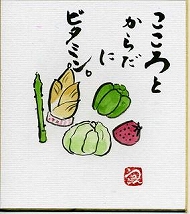 こころと
からだ
に
ビタミン。